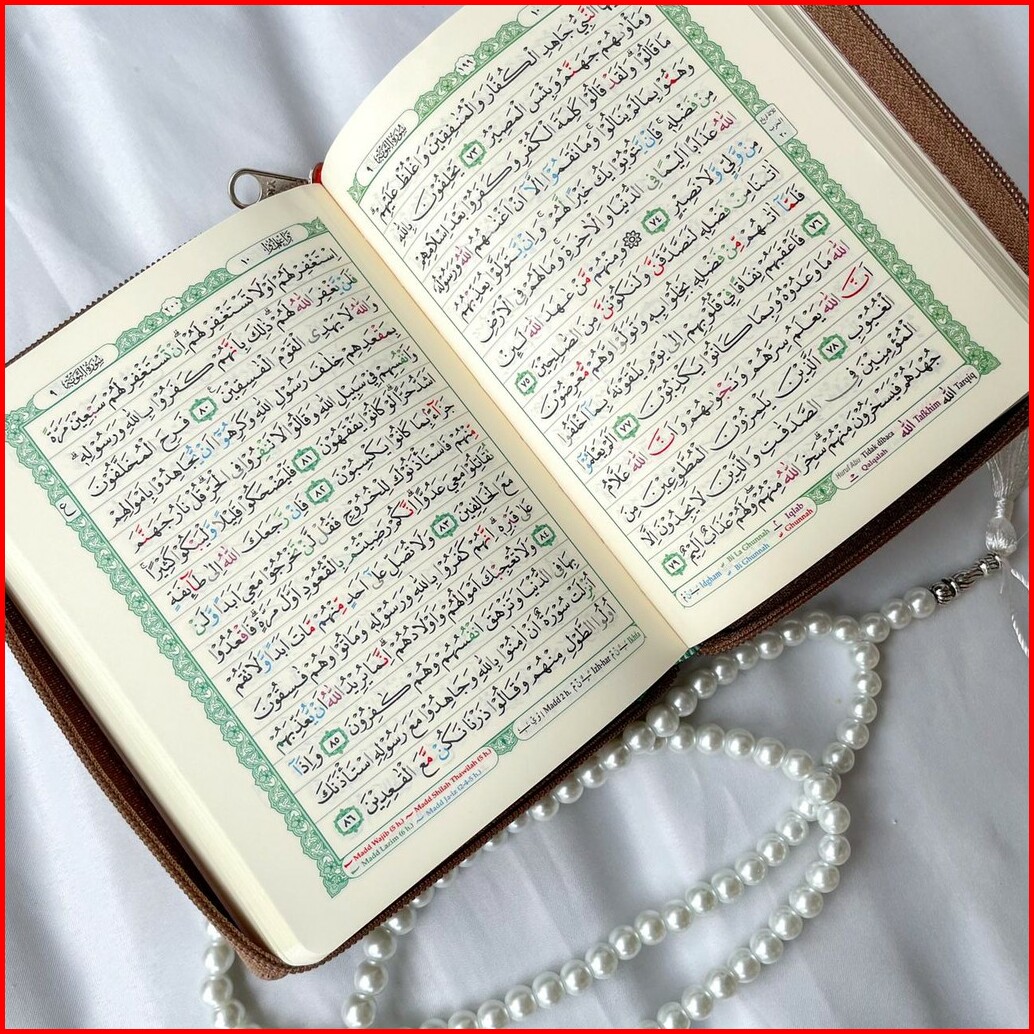 ١٩٩
سُوْرَةُ التَّوْبَةِ ٩
النَّبِيُّ جَاهِدِ الْكُفَّارَ وَالْمُنٰفِقِيْنَ وَاغْلُظْ عَلَيْهِمْۗ
وَمَأْوٰىهُمْ جَهَنَّمُۗ وَبِئْسَ الْمَصِيْرُ ٧٣ يَحْلِفُوْنَ بِاللّٰهِ
مَا قَالُوْاۗ وَلَقَدْ قَالُوْا كَلِمَةَ الْكُفْرِ وَكَفَرُوْا بَعْدَ اِسْلَامِهِمْ
وَهَمُّوْا بِمَا لَمْ يَنَالُوْاۚ وَمَا نَقَمُوْٓا اِلَّآ اَنْ اَغْنٰىهُمُ اللّٰهُ وَرَسُوْلُهٗ
مِنْ فَضْلِهٖۚ فَاِنْ يَّتُوْبُوْا يَكُ خَيْرًا لَّهُمْۚ وَاِنْ يَّتَوَلَّوْا يُعَذِّبْهُمُ
اللّٰهُ عَذَابًا اَلِيْمًا فِى الدُّنْيَا وَالْاٰخِرَةِۚ وَمَا لَهُمْ فِى الْاَرْضِ
مِنْ وَّلِيٍّ وَّلَا نَصِيْرٍ ٧٤ ۞ وَمِنْهُمْ مَّنْ عٰهَدَ اللّٰهَ لَىِٕنْ
اٰتٰىنَا مِنْ فَضْلِهٖ لَنَصَّدَّقَنَّ وَلَنَكُوْنَنَّ مِنَ الصّٰلِحِيْنَ ٧٥
فَلَمَّآ اٰتٰىهُمْ مِّنْ فَضْلِهٖ بَخِلُوْا بِهٖ وَتَوَلَّوْا وَّهُمْ مُّعْرِضُوْنَ
٧٦ فَاَعْقَبَهُمْ نِفَاقًا فِيْ قُلُوْبِهِمْ اِلٰى يَوْمِ يَلْقَوْنَهٗ بِمَآ اَخْلَفُوا
اللّٰهَ مَا وَعَدُوْهُ وَبِمَا كَانُوْا يَكْذِبُوْنَ ٧٧ اَلَمْ يَعْلَمُوْٓا
اَنَّ اللّٰهَ يَعْلَمُ سِرَّهُمْ وَنَجْوٰىهُمْ وَاَنَّ اللّٰهَ عَلَّامُ
الْغُيُوْبِ ٧٨ اَلَّذِيْنَ يَلْمِزُوْنَ الْمُطَّوِّعِيْنَ مِنَ
الْمُؤْمِنِيْنَ فِى الصَّدَقٰتِ وَالَّذِيْنَ لَا يَجِدُوْنَ اِلَّا
جُهْدَهُمْ فَيَسْخَرُوْنَ مِنْهُمْۗ سَخِرَ اللّٰهُ مِنْهُمْۖ وَلَهُمْ عَذَابٌ اَلِيْمٌ ٧٩
Idgham Bi La Ghunnah Iqlab Huruf Abu² Tidak dibaca اللّٰه Tafkhim اللّٰه Tarqiq
Bi Ghunnah Ghunnah Qalqalah
٢٠٠
١٠
سُوْرَةُ التَّوْبَةِ ٩
اِسْتَغْفِرْ لَهُمْ اَوْ لَا تَسْتَغْفِرْ لَهُمْۗ اِنْ تَسْتَغْفِرْ لَهُمْ سَبْعِيْنَ مَرَّةً
فَلَنْ يَّغْفِرَ اللّٰهُ لَهُمْۗ ذٰلِكَ بِاَنَّهُمْ كَفَرُوْا بِاللّٰهِ وَرَسُوْلِهٖۗ
وَاللّٰهُ لَا يَهْدِى الْقَوْمَ الْفٰسِقِيْنَ ٨٠ فَرِحَ الْمُخَلَّفُوْنَ
بِمَقْعَدِهِمْ خِلٰفَ رَسُوْلِ اللّٰهِ وَكَرِهُوْٓا اَنْ يُّجَاهِدُوْا بِاَمْوَالِهِمْ
وَاَنْفُسِهِمْ فِيْ سَبِيْلِ اللّٰهِ وَقَالُوْا لَا تَنْفِرُوْا فِى الْحَرِّۗ قُلْ نَارُ جَهَنَّمَ
اَشَدُّ حَرًّاۗ لَوْ كَانُوْا يَفْقَهُوْنَ ٨١ فَلْيَضْحَكُوْا قَلِيْلًا وَّلْيَبْكُوْا كَثِيْرًاۚ
جَزَاۤءًۢ بِمَا كَانُوْا يَكْسِبُوْنَ ٨٢ فَاِنْ رَّجَعَكَ اللّٰهُ اِلٰى طَاۤىِٕفَةٍ
مِّنْهُمْ فَاسْتَأْذَنُوْكَ لِلْخُرُوْجِ فَقُلْ لَّنْ تَخْرُجُوْا مَعِيَ اَبَدًا وَّلَنْ
تُقَاتِلُوْا مَعِيَ عَدُوًّاۗ اِنَّكُمْ رَضِيْتُمْ بِالْقُعُوْدِ اَوَّلَ مَرَّةٍۗ فَاقْعُدُوْا
مَعَ الْخٰلِفِيْنَ ٨٣ وَلَا تُصَلِّ عَلٰٓى اَحَدٍ مِّنْهُمْ مَّاتَ اَبَدًا وَّلَا تَقُمْ
عَلٰى قَبْرِهٖۗ اِنَّهُمْ كَفَرُوْا بِاللّٰهِ وَرَسُوْلِهٖ وَمَاتُوْا وَهُمْ فٰسِقُوْنَ
٨٤ وَلَا تُعْجِبْكَ اَمْوَالُهُمْ وَاَوْلَادُهُمْۗ اِنَّمَا يُرِيْدُ اللّٰهُ اَنْ يُّعَذِّبَهُمْ
بِهَا فِى الدُّنْيَا وَتَزْهَقَ اَنْفُسُهُمْ وَهُمْ كٰفِرُوْنَ ٨٥ وَاِذَآ
اُنْزِلَتْ سُوْرَةٌ اَنْ اٰمِنُوْا بِاللّٰهِ وَجَاهِدُوْا مَعَ رَسُوْلِهِ اسْتَأْذَنَكَ
اُولُوا الطَّوْلِ مِنْهُمْ وَقَالُوْا ذَرْنَا نَكُنْ مَّعَ الْقٰعِدِيْنَ ٨٦
Madd Wajib (5 h.) Madd Shilah Thawilah (5 h.) Madd 2 h. Izh-har Ikhfa
Madd Lazim (6 h.) Madd Ja-iz (2-4-5 h.)